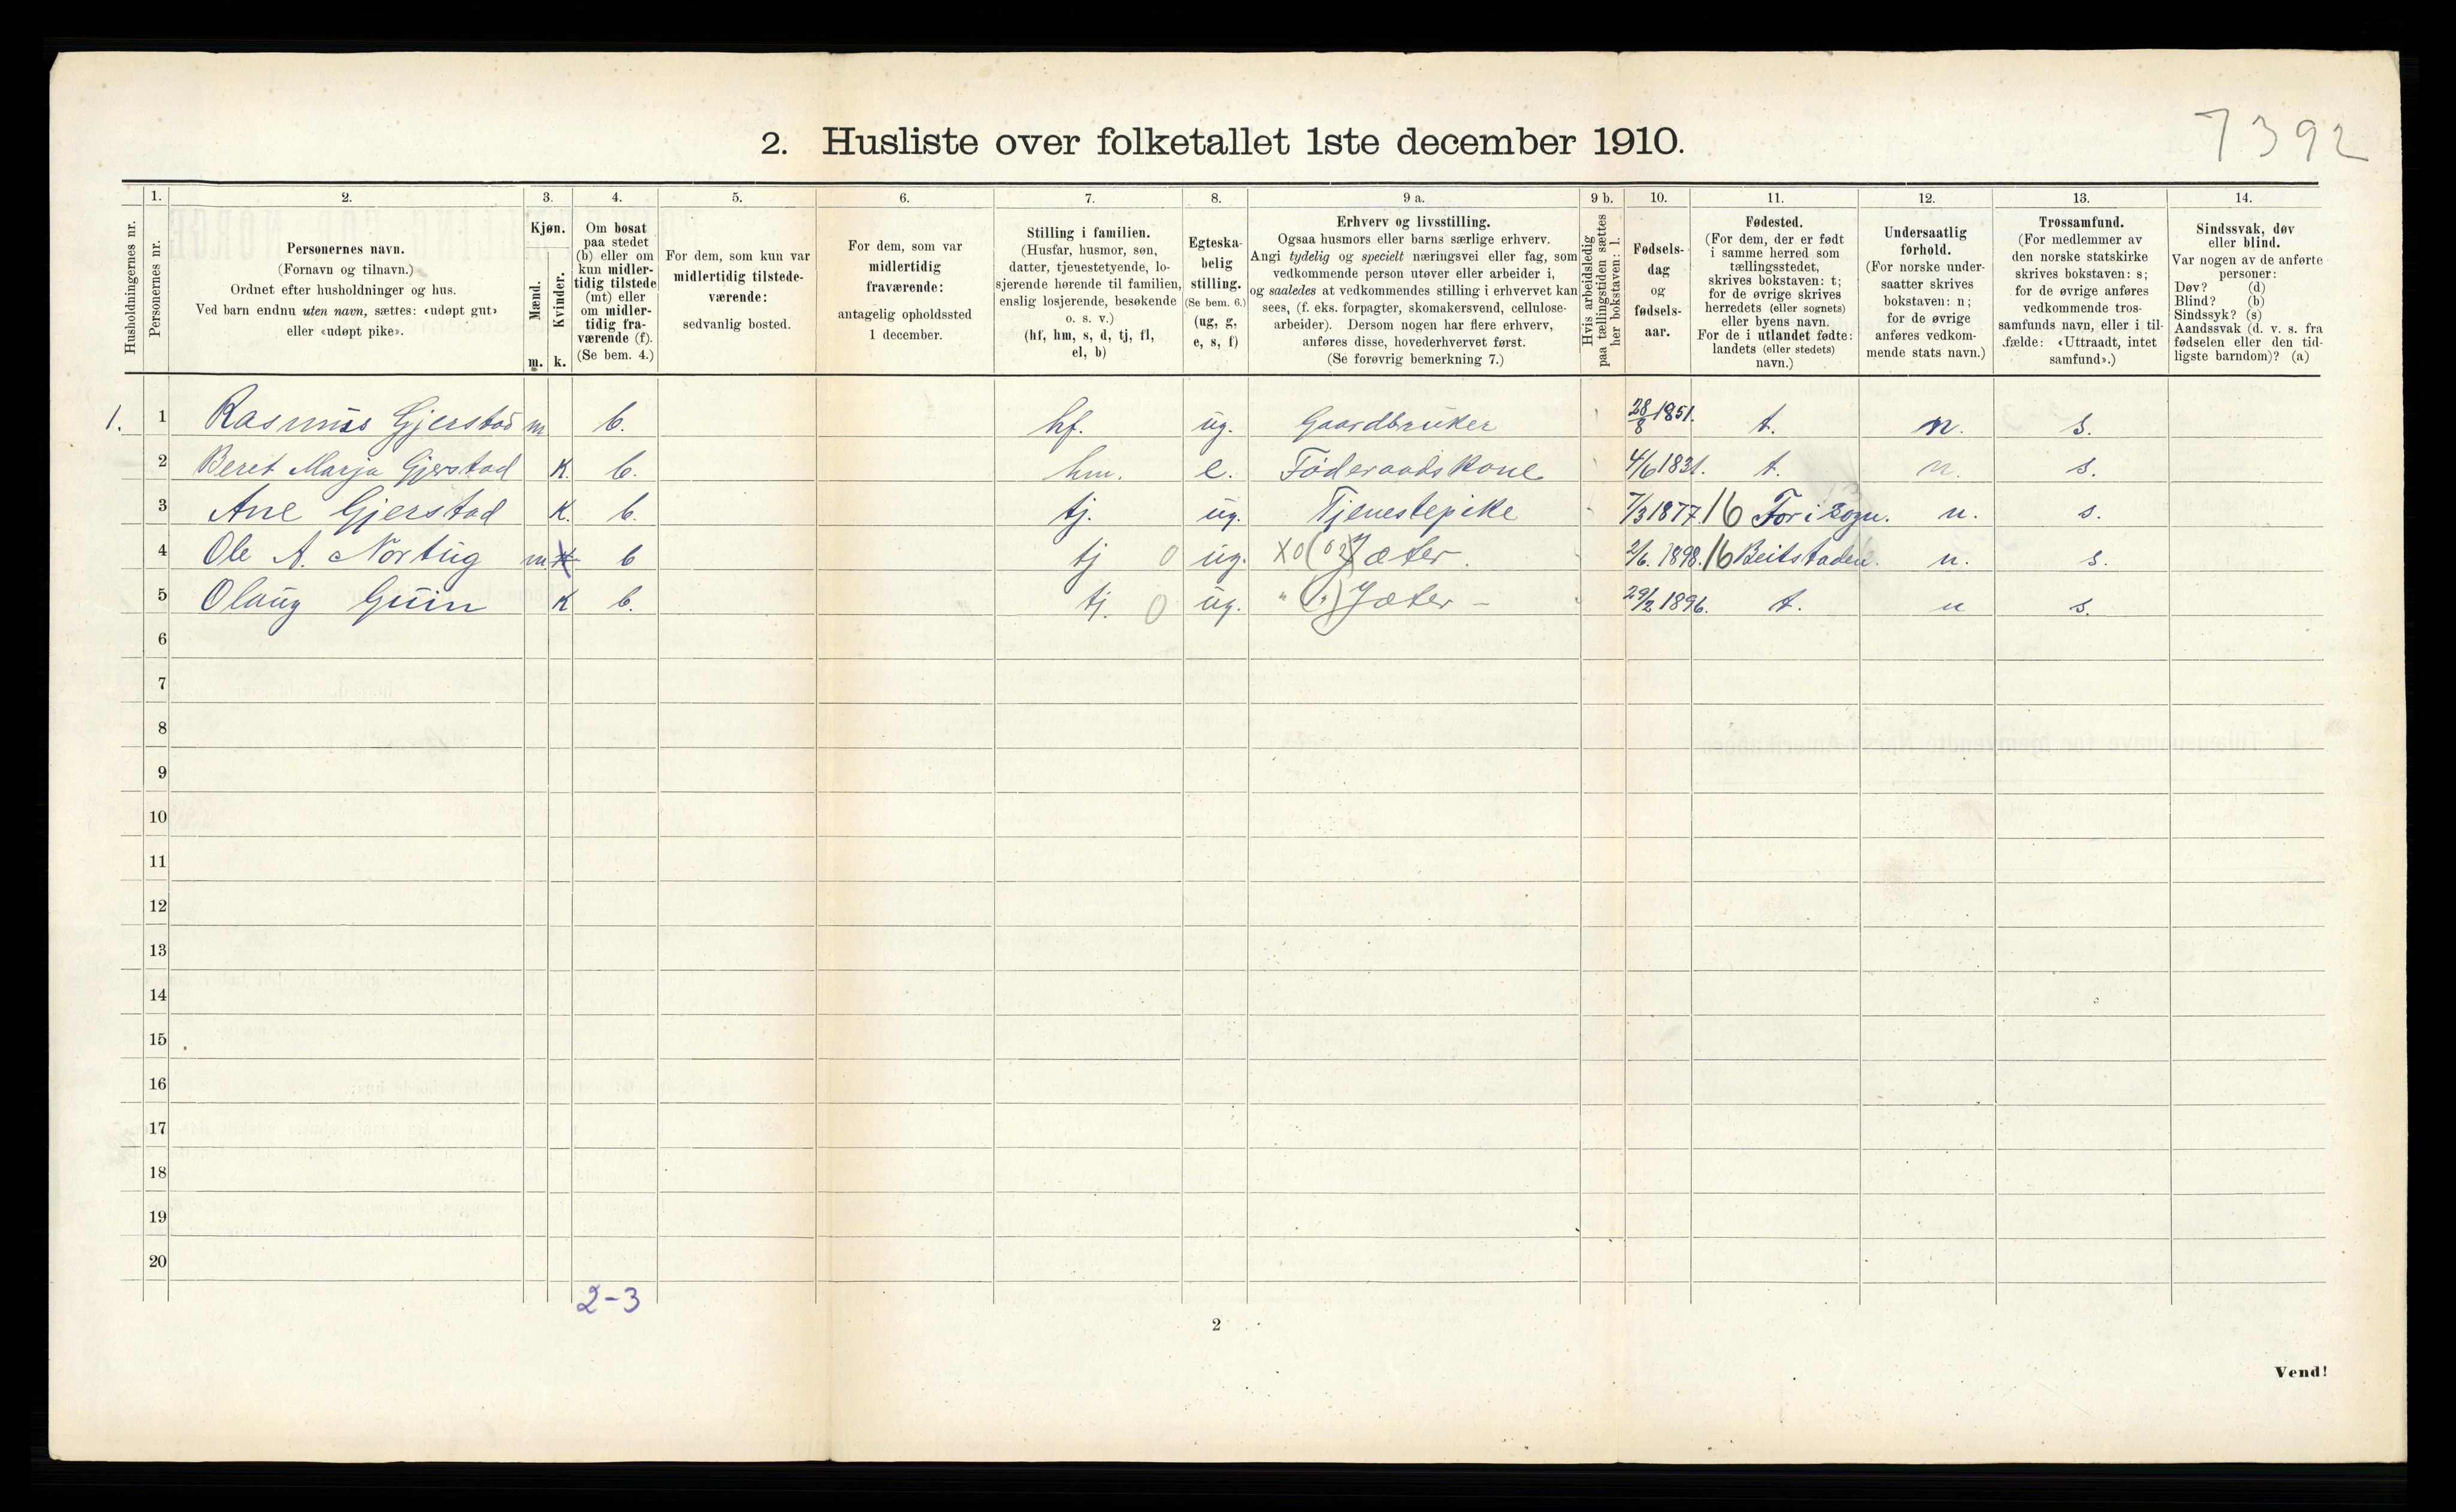 7392
2. Husliste over folketallet 1ste december 1910.
Husholdningernes nr.
1.
Personernes nr.
2.
Personernes navn.
(Fornavn og tilnavn.)
Ordnet efter husholdninger og hus.
Ved barn endnu uten navn, sættes: «udøpt gut»
eller «udøpt pike».
3.
Kjøn.
Mænd.
Kvinder.
m. k.
4.
Om bosat
paa stedet
(b) eller om
kun midler-
tidig tilstede
(mt) eller
om midler-
tidig fra-
værende (f).
(Se bem. 4.)
5.
For dem, som kun var
midlertidig tilstede-
værende:
sedvanlig bosted.
6.
For dem, som var
midlertidig
fraværende:
antagelig opholdssted
1 december.
7.
Stilling i familien.
(Husfar, husmor, søn,
datter, tjenestetyende, lo-
sjerende hørende til familien,
enslig losjerende, besøkende
o. s. v.)
(hf, hm, s, d, tj, fl,
el, b)
8.
Egteska-
belig
stilling.
(Se bem. 6.)
(ug, g,
e, s, f)
9 a.
Erhverv og livsstilling.
Ogsaa husmors eller barns særlige erhverv.
Angi tydelig og specielt næringsvei eller fag, som
vedkommende person utøver eller arbeider i,
og saaledes at vedkommendes stilling i erhvervet kan
sees, (f. eks. forpagter, skomakersvend, cellulose-
arbeider). Dersom nogen har flere erhverv,
anføres disse, hovederhvervet først.
(Se forøvrig bemerkning 7.)
9 b.
Hvis arbeidsledig
paa tællingstiden sættes
her bokstaven: l.
10.
Fødsels-
dag
og
fødsels-
aar.
11.
Fødested.
(For dem, der er født
i samme herred som
tællingsstedet,
skrives bokstaven: t;
for de øvrige skrives
herredets (eller sognets)
eller byens navn.
For de i utlandet fødte:
landets (eller stedets)
navn.)
12.
Undersaatlig
forhold.
(For norske under-
saatter skrives
bokstaven: n;
for de øvrige
anføres vedkom-
mende stats navn.)
13.
Trossamfund.
(For medlemmer av
den norske statskirke
skrives bokstaven: s;
for de øvrige anføres
vedkommende tros-
samfunds navn, eller i til-
fælde: «Uttraadt, intet
samfund».)
14.
Sindssvak, døv
eller blind.
Var nogen av de anførte
personer:
Døv? (d)
Blind? (b)
Sindssyk? (s)
Aandssvak (d. v. s. fra
fødselen eller den tid-
ligste barndom)? (a)
1. 1 Rasmus Gjerstad m b. hf. ug. Gaardbruker 28/8 1851. t. n. s.
2 Beret Marja Gjerstad K. b. hm. e. Föderaadskone 4/6 1831. t. n. s.
3 Ane Gjerstad K. b. tj. ug. Tjenestepike 7/3 1877. 16 For i Sogn. n. s.
4 Ole A. Nortug m. b tj 0 ug. Jæter. 2/6. 1898. 16 Beitstaden. n. s.
5 Olaug Guin K b. tj. 0 ug. Jæter - 29/2 1896. t. n s.
6
7
8
9
10
11
12
13
14
15
16
17
18
19
20
2-3
2
Vend!